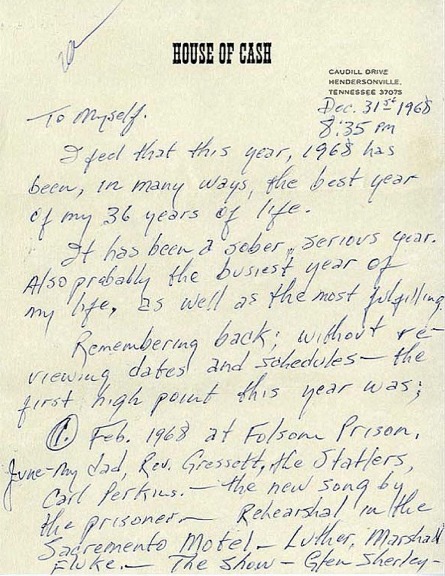 HOUSE OF CASH
CAUDILL DRIVE
HENDERSONVILLE,
TENNESSEE 37075
Dec. 31st 1968
8:35 PM
To Myself.
I feel that this year, 1968 has
been, in many ways, the best year
of my 36 years of life.
It has been a sober, serious year.
Also probally the busiest year of
my life, as well as the most fulfilling.
Remembering back; without re-
viewing dates and schedules — the
first high point this year was;
1. Feb. 1968 at Folsom Prison.
June - my dad, Rev. Gressett, the Statlers,
Carl Perkins. — the new song by
the prisoner — Rehearsal in the
Sacremento Motel — Luther, Marshall
Fluke. — The show — Glen Sherley —